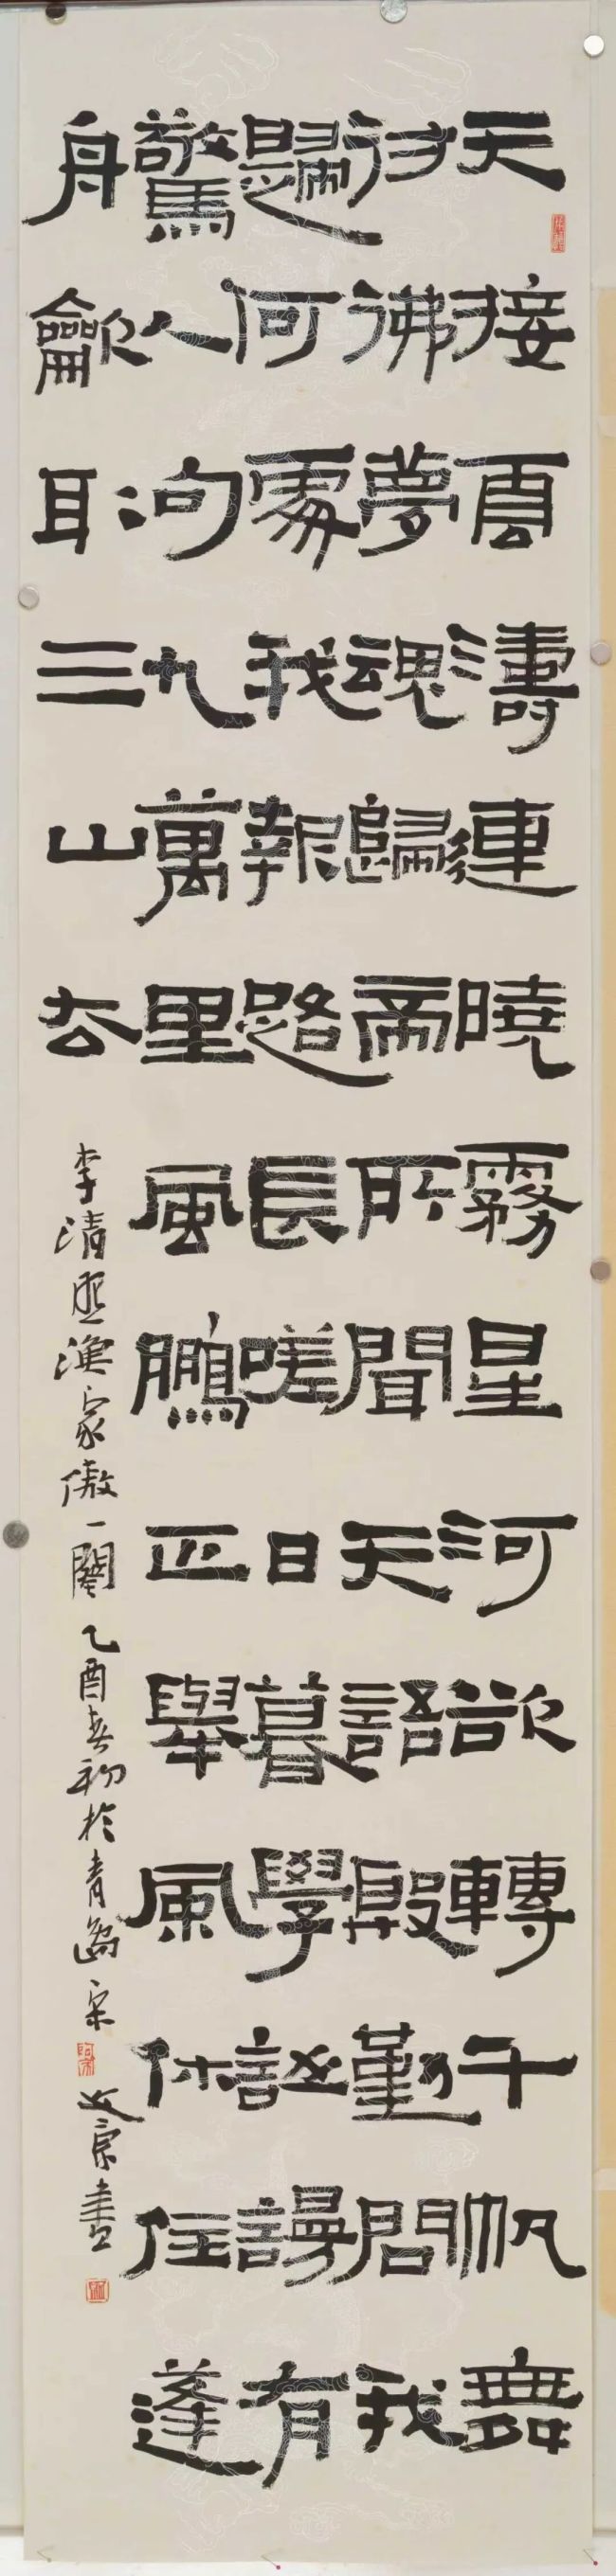 天接雲濤連曉霧星河欲轉千帆舞
彷彿夢魂歸帝所聞天語殷勤問我
歸何處我報路長嗟日暮學詩謾有
驚人句九萬里風鵬正舉風休住蓬
舟龡取三山去
李清照漁家傲一闋乙酉春初於青島宋文京書